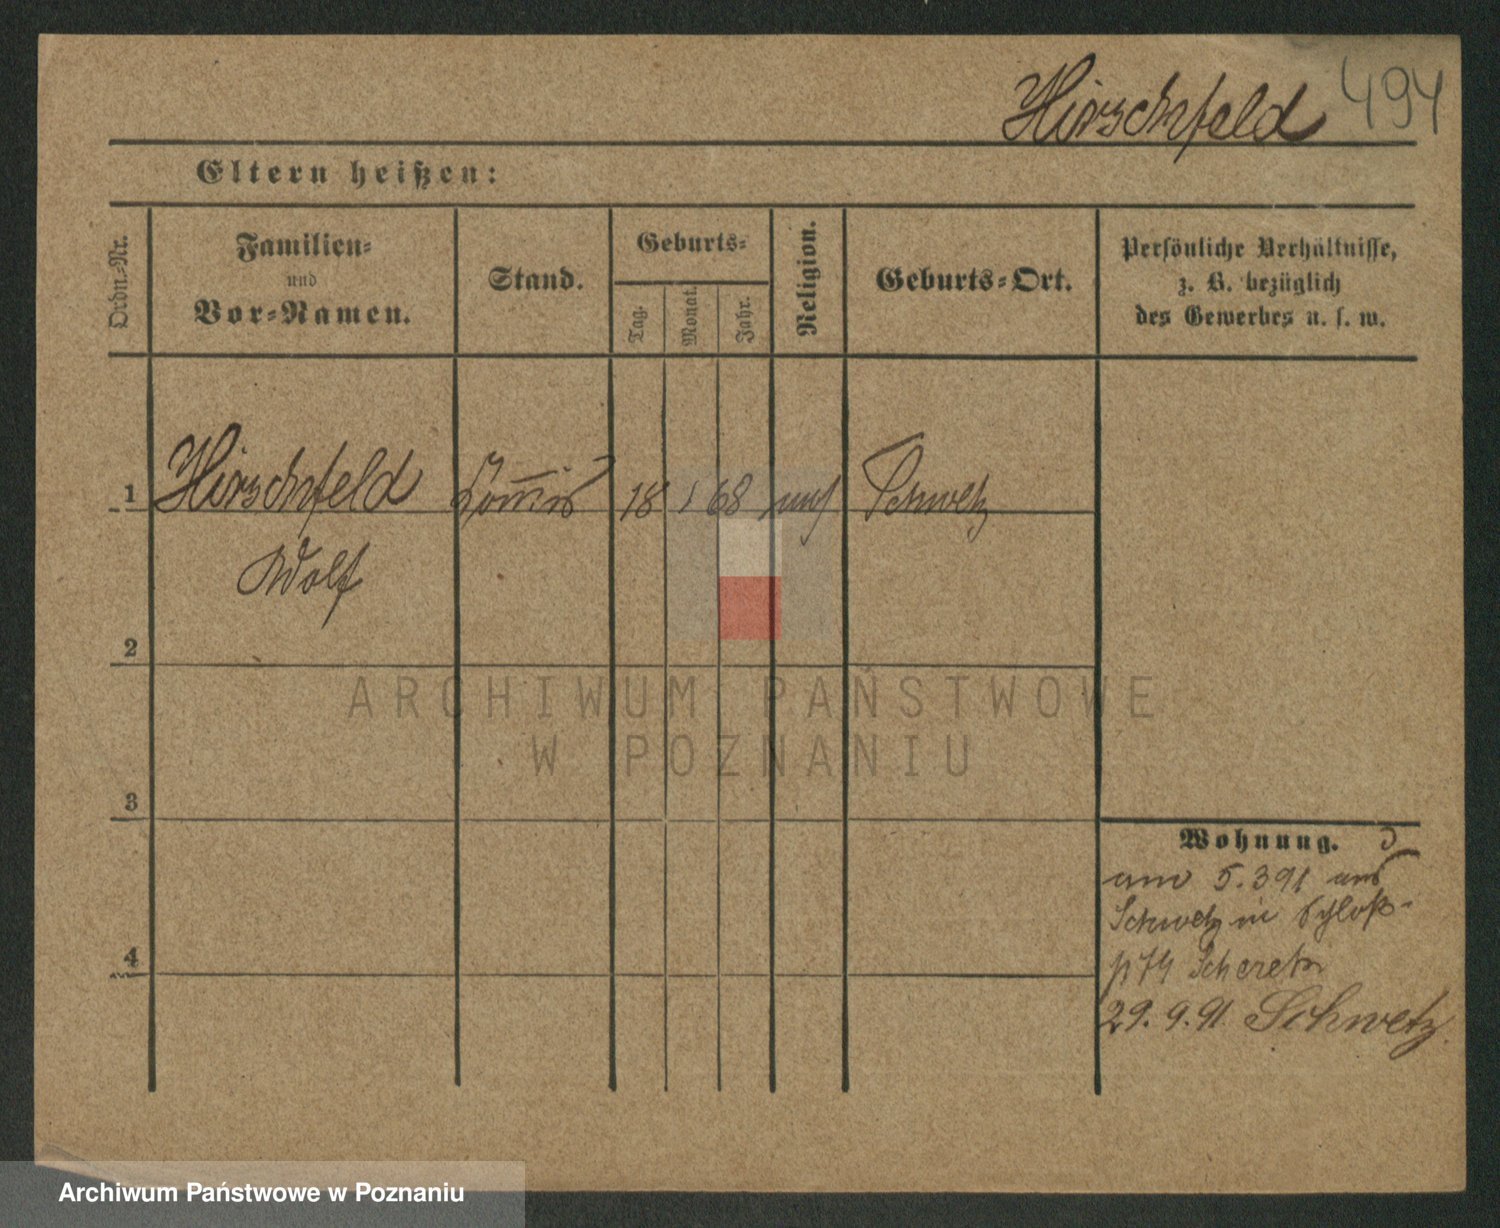 Hirschfeld 494
Eltern heißen:
Ordn.-Nr.
Familien-
und
Vor-Namen.
Stand.
Geburts-
Tag.
Monat.
Jahr.
Religion.
Geburts-Ort.
Persönliche Verhältnisse,
z. B. bezüglich
des Gewerbes u. s. w.
1 Hirschfeld 18 1 68 Schwetz
Adolf
2
3
4
ARCHIWUM PAŃSTWOWE
W POZNANIU
Wohnung.
am 5.3 91 aus
Schwetz in Schloß-
29.9.91 Schwetz
Archiwum Państwowe w Poznaniu